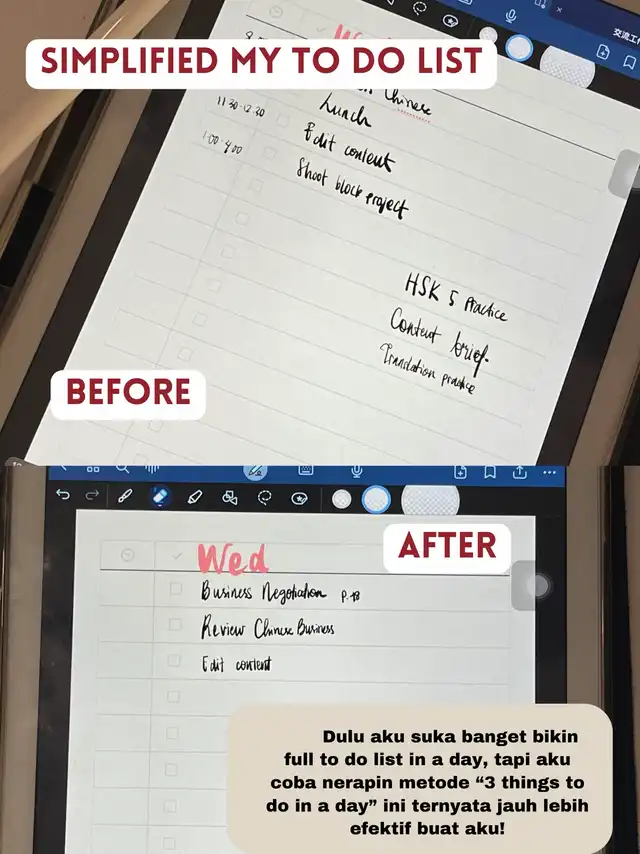 SIMPLIFIED MY TO DO LIST
交流工
Chinese
11.30-12.30 Lunch
Edit content
1.00-4.00 Shoot block project
HSK 5 Practice
Content brief.
Translation practice
BEFORE
AFTER
Wed
Business Negotiation P.
Review Chinese Business
Edit content
Dulu aku suka banget bikin
full to do list in a day, tapi aku
coba nerapin metode “3 things to
do in a day” ini ternyata jauh lebih
efektif buat aku!